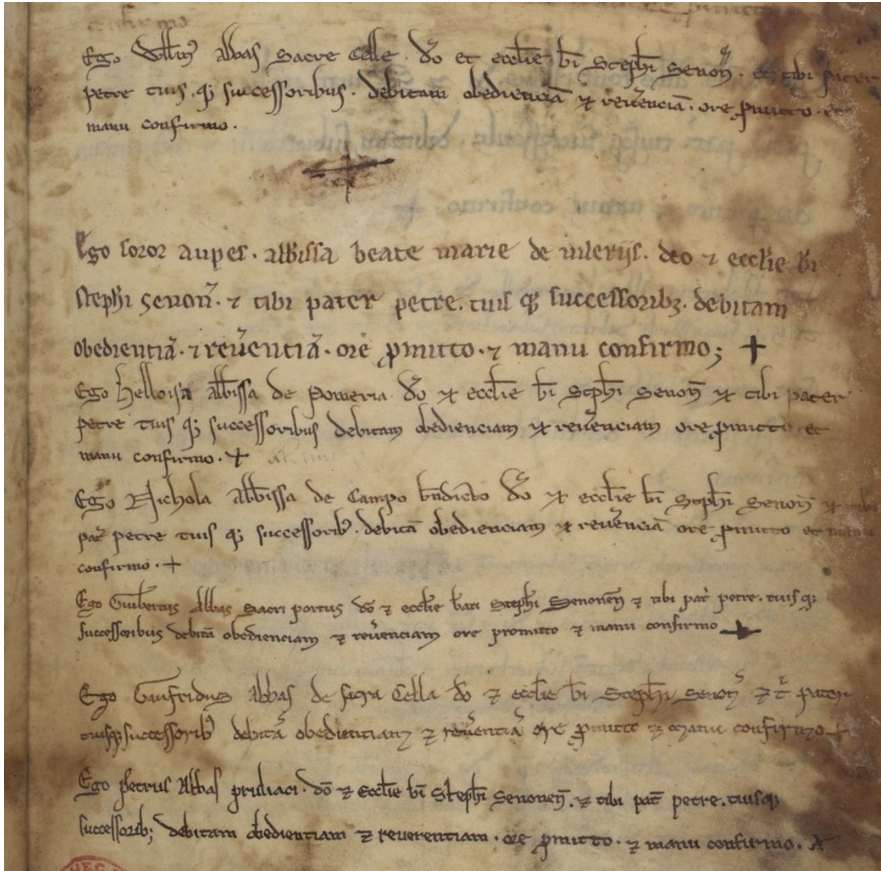 Ego Willmꝰ Abbas Sacre Celle. dō et eccłie bi Stephi Senoñ. et tibi pater
petre tuis qꝫ successoribus. debitam obedienciā ⁊ reũenciā. ore ꝓmitto et
manu confirmo.
Ego soror abbissa beate marie de. deo ⁊ ecclie bi
stephi senoñ. ⁊ tibi pater petre. tuis qꝫ successoribꝫ. debitam
obedientiã. ⁊ reũentiã. ore ꝓmitto. ⁊ manu confirmo; +
Ego helloisa abbissa de Poweria dō ⁊ ecclie bi Stephi Senoñ ⁊ tibi pater
petre tuis qꝫ successoribus debitam obedienciam ⁊ reũenciam ore ꝓmitto et
manu confirmo. +
Ego Nichola abbissa de Campo bñdicto dō ⁊ ecclie bi Stephi Senoñ ⁊ tibi
pat petre tuis qꝫ successoribꝰ. debitā obedienciam ⁊ reũenciā ore ꝓmitto et manu
confirmo. +
Ego Guibertus Abbas Sacri portus dō ⁊ ecclie bati Stephi Senoneñ ⁊ tibi pat petre. tuisqꝫ
successoribus debitā obedienciam ⁊ reũenciam ore promitto ⁊ manu confirmo +
Ego Gaufridus Abbas de sacra Cella dō ⁊ ecclie bi Stephi Senoñ ⁊ t pater
tuisqꝫ successoribꝰ debitā obedientiam ⁊ reũentiā ore ꝓmitto ⁊ manu confirmo +
Ego petrus Abbas pruliaci. dō ⁊ Ecclie bi Stephi Senoneñ. ⁊ tibi pat petre. tuisqꝫ
successoribꝫ debitam obedientiam ⁊ reuerentiam. ore ꝓmitto. ⁊ manu confirmo. +